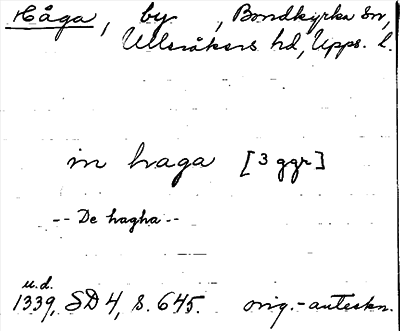 Håga, by, Bondkyrka sn,
Ulleråkers hd, Upps. l.
in haga [3 ggr]
-- De hagha --
u.d.
1339, SD 4, s. 645. orig.-anteckn.